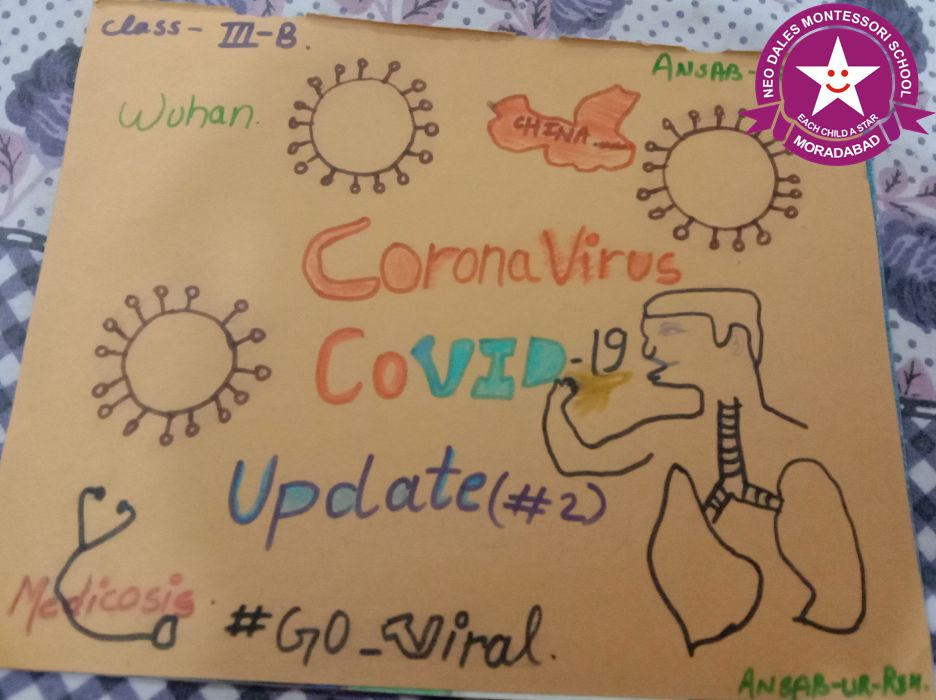 Class- III-B.
ANSAB-
NEO DALES MONTESSORI SCHOOL
EACH CHILD A STAR
MORADABAD
Wuhan.
CHINA......
CoronaVirus
CoVID-19
Update(#2)
Medicosis.
#GO_Viral.
ANSAB-UR-REH.